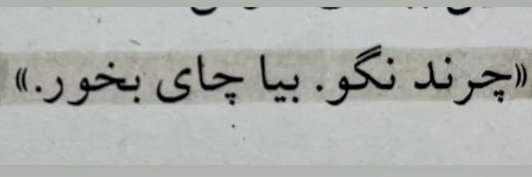 «چرند نگو. بیا چای بخور.»